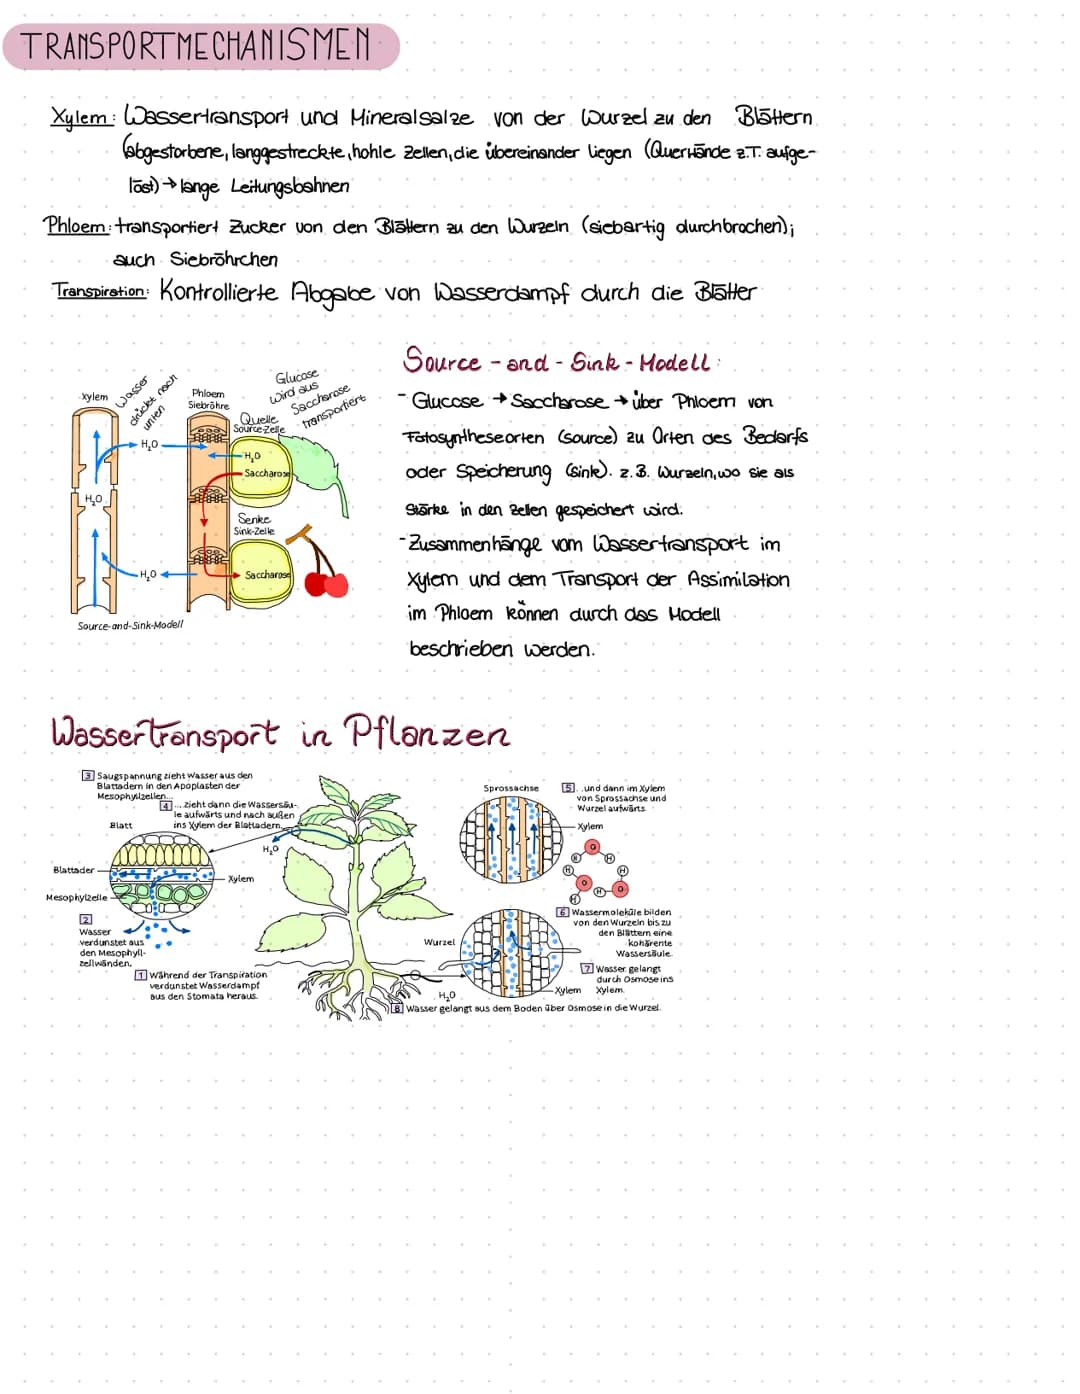 TRANSPORTMECHANISMEN
Xylem: Wassertransport und Mineralsalze von der Wurzel zu den Blättern
(abgestorbene, langgestreckte, hohle Zellen, die übereinander liegen (Querwände z.T. aufge-
löst) → lange Leitungsbahnen
Phloem: transportiert Zucker von den Blättern zu den Wurzeln (siebartig durchbrochen);
auch Siebröhrchen
Transpiration: Kontrollierte Abgabe von Wasserdampf durch die Blätter
Source - and - Sink - Modell:
- Glucose → Saccharose → über Phloem von
Fotosyntheseorten (source) zu Orten des Bedarfs
oder Speicherung (sink). z.B. Wurzeln, wo sie als
Stärke in den Zellen gespeichert wird.
- Zusammenhänge vom Wassertransport im
Xylem und dem Transport der Assimilation
im Phloem können durch das Modell
beschrieben werden.
Xylem
Wasser
drückt nach
unten
Phloem
Siebröhre
Glucose
wird aus
Saccharose
transportiert
Quelle
Source-Zelle
H₂O
H₂O
Saccharose
H₂O
Senke
Sink-Zelle
H₂O
Saccharose
Source-and-Sink-Modell
Wassertransport in Pflanzen
3 Saugspannung zieht Wasser aus den
Blattadern in den Apoplasten der
Mesophyllzellen...
4 ...zieht dann die Wassersäu-
le aufwärts und nach außen
ins Xylem der Blattadern...
Blatt
H₂O
Blattader
Xylem
Mesophyllzelle
2
Wasser
verdunstet aus
den Mesophyll-
zellwänden.
1 Während der Transpiration
verdunstet Wasserdampf
aus den Stomata heraus.
Sprossachse
5 ...und dann im Xylem
von Sprossachse und
Wurzel aufwärts.
Xylem
O
H H
H H
O
H O
H
6 Wassermoleküle bilden
von den Wurzeln bis zu
den Blättern eine
kohärente
Wassersäule.
Wurzel
7 Wasser gelangt
durch Osmose ins
Xylem.
Xylem
H₂O
8 Wasser gelangt aus dem Boden über Osmose in die Wurzel.